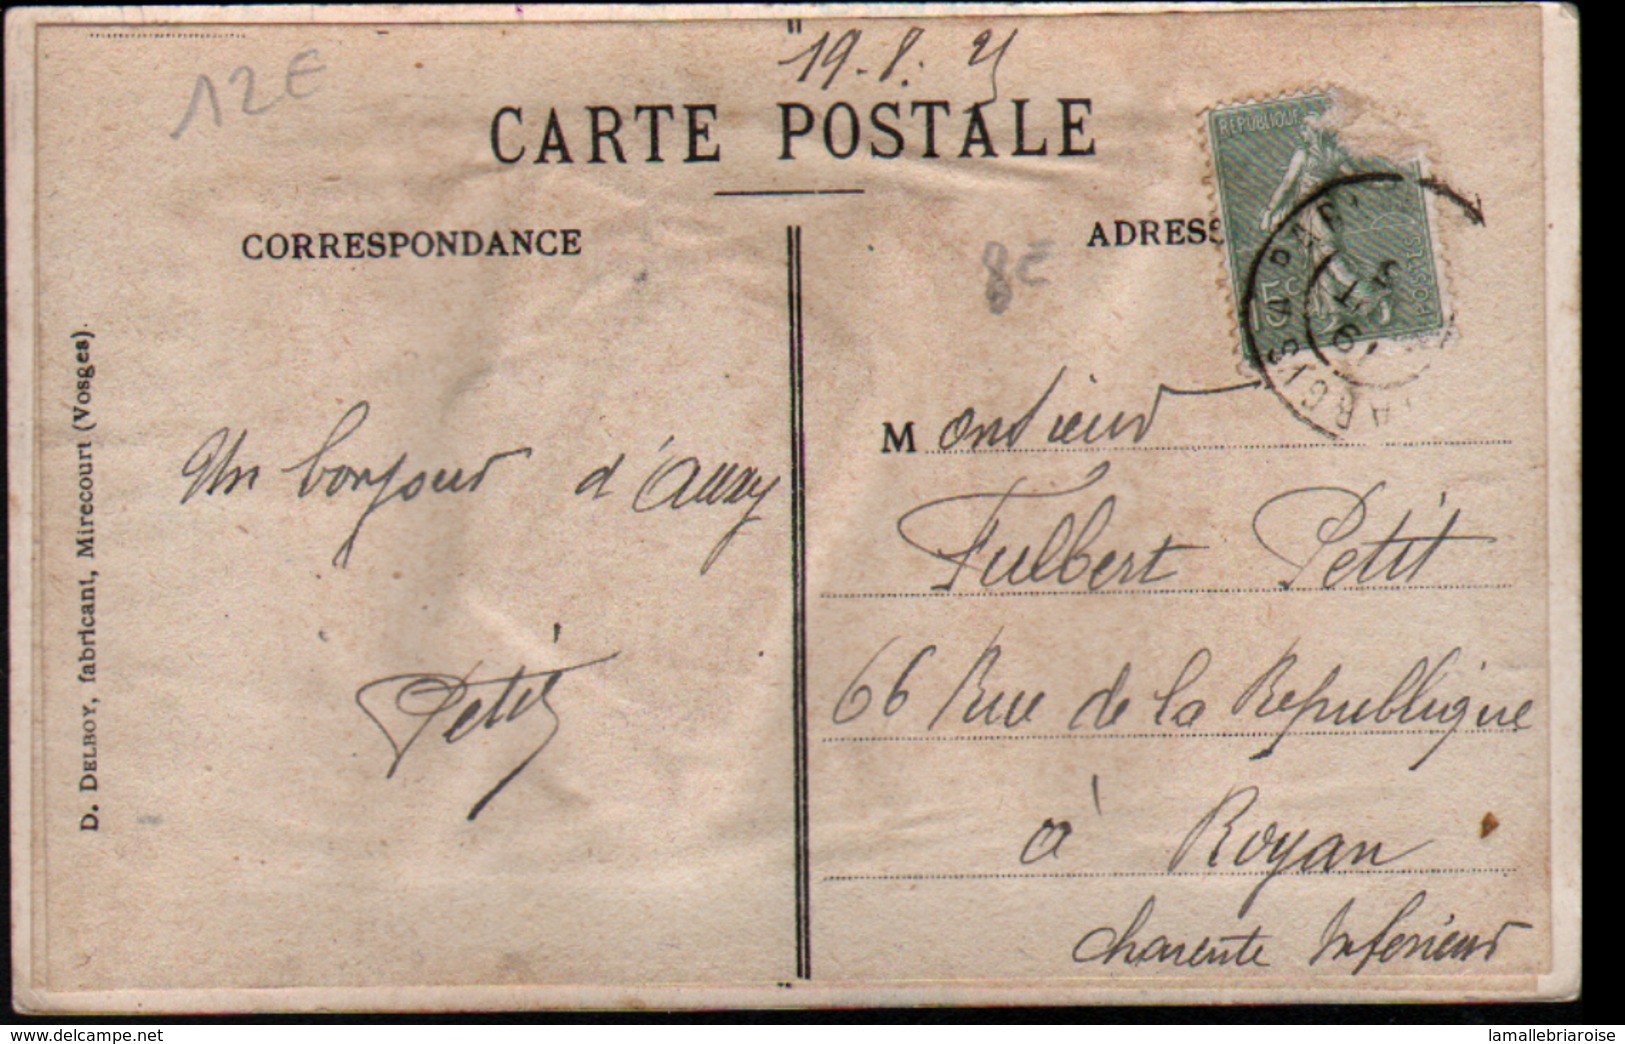 12€
19.8.25
CARTE POSTALE
CORRESPONDANCE
ADRESS
8€
REPUBLIQUE
15c
POSTES
PARGIS A PARIS
Un bonjour d'Auxy
Petit
Monsieur
Fulbert Petit
66 Rue de la Republique
à Royan
Charente Inferieur
D. DELBOY, fabricant, Mirecourt (Vosges).
www.delcampe.net
lamallebriaroise